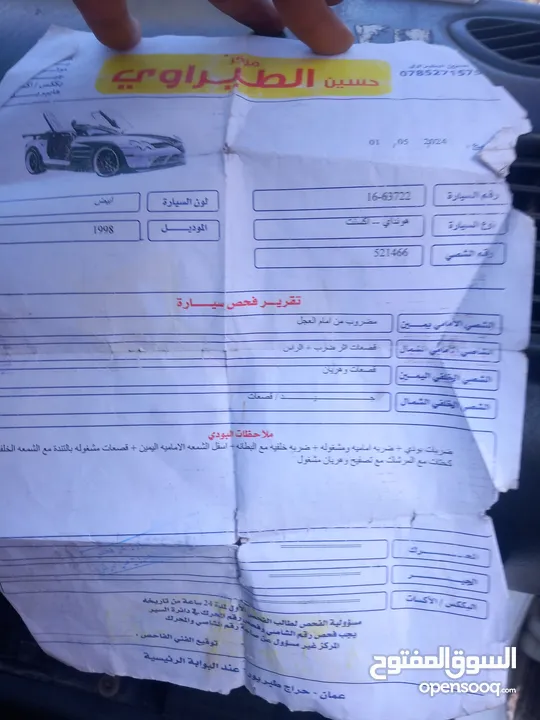 مركز
حسين الطيراوي
0785271575
01 05 2024
رقم السيارة 16-63722 لون السيارة ابيض
نوع السيارة هونداي – اكسنت الموديل 1998
رقم الشصي 521466
تقرير فحص سيارة
الشصي الامامي يمين مضروب من امام العجل
الشصي الامامي شمال قصعات اثر ضرب + الراس
الشصي الخلفي اليمين قصعات وهريان
الشصي الخلفي الشمال جـــــيد / قصعات
ملاحظات البودي
ضربات بودي + ضربه اماميه ومشغوله + ضربه خلفيه مع البطانه + اسفل الشمعه الاماميه اليمين + قصعات مشغوله بالتندة مع الشمعه الخلف
كحتات مع المرشاك مع تصفيح وهريان مشغول
المحـــرك
الجـــير
البككس / الأكسات
مسؤولية الفحص لطالب الفحص الأولي لمدة 24 ساعة من تاريخه
يجب فحص رقم الشاصي وفحص رقم المحرك في دائرة السير
المركز غير مسؤول عن رقم الشاصي والمحرك
توقيع الفني الفاحص :
عمان - حراج طبربور - عند البوابة الرئيسية
السوق المفتوح
opensooq.com